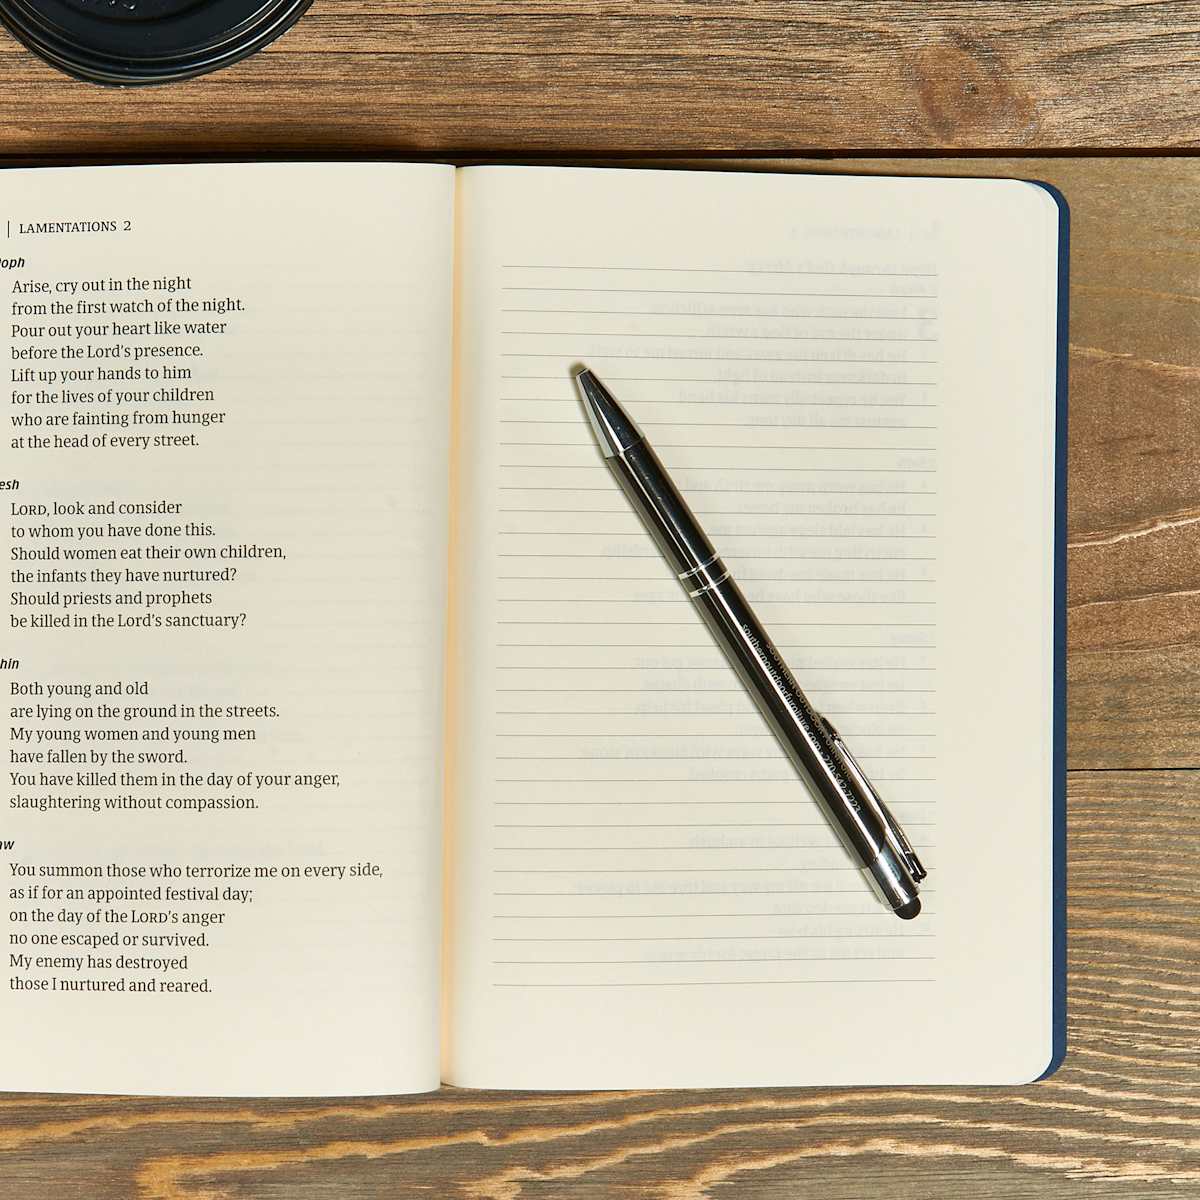 | LAMENTATIONS 2
oph
Arise, cry out in the night
from the first watch of the night.
Pour out your heart like water
before the Lord's presence.
Lift up your hands to him
for the lives of your children
who are fainting from hunger
at the head of every street.
esh
LORD, look and consider
to whom you have done this.
Should women eat their own children,
the infants they have nurtured?
Should priests and prophets
be killed in the Lord's sanctuary?
hin
Both young and old
are lying on the ground in the streets.
My young women and young men
have fallen by the sword.
You have killed them in the day of your anger,
slaughtering without compassion.
aw
You summon those who terrorize me on every side,
as if for an appointed festival day;
on the day of the LORD's anger
no one escaped or survived.
My enemy has destroyed
those I nurtured and reared.
SOUTHERN OUTDOOR FURNITURE
southernoutdoorfurniture.com • 270-542-7223